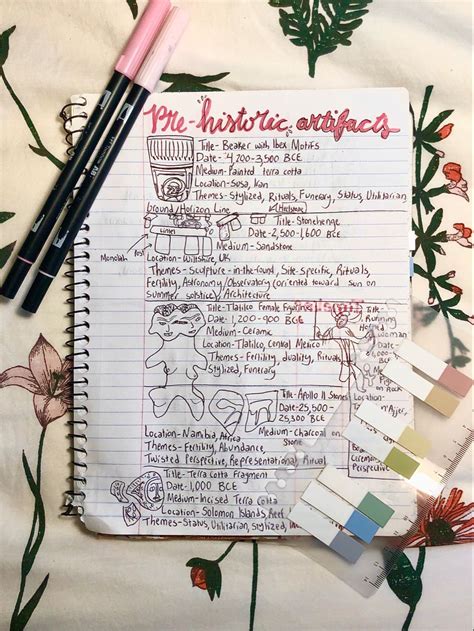 Pre-historic artifacts
Title- Beaker with Ibex Motifs
Date- 4,200-3,500 BCE
Medium- Painted terra cotta
Location- Susa, Iran
Themes- Stylized, Rituals, Funerary, Status, Utilitarian
Ground/Horizon Line
Title- Stonehenge
Lintel
Date- 2,500-1,600 BCE
Monolith
Post
Medium- Sandstone
Location- Wiltshire, UK
Themes- Sculpture-in-the-round, Site-specific, Rituals,
Fertility, Astronomy/Observatory (oriented toward sun on
summer solstice), Architecture
Title- Tlatilco Female Figurine
Date- 1,200-900 BCE
Medium- Ceramic
Location- Tlatilco, Central Mexico
Themes- Fertility, duality, Rituals,
Stylized, Funerary
Title-
Running
Horned
Woman
Date-
6,000-
on Rock
Location-
Title- Apollo 11 Stones
Date- 25,500-
25,300 BCE
Medium- Charcoal on
Stone
Location- Namibia, Africa
Themes- Fertility, Abundance,
Twisted Perspective, Representational, Ritual
Perspective
Title- Terra Cotta Fragment
Date- 1,000 BCE
Medium- Incised Terra Cotta
Location- Solomon Islands, Reef
Themes- Status, Utilitarian, Stylized,